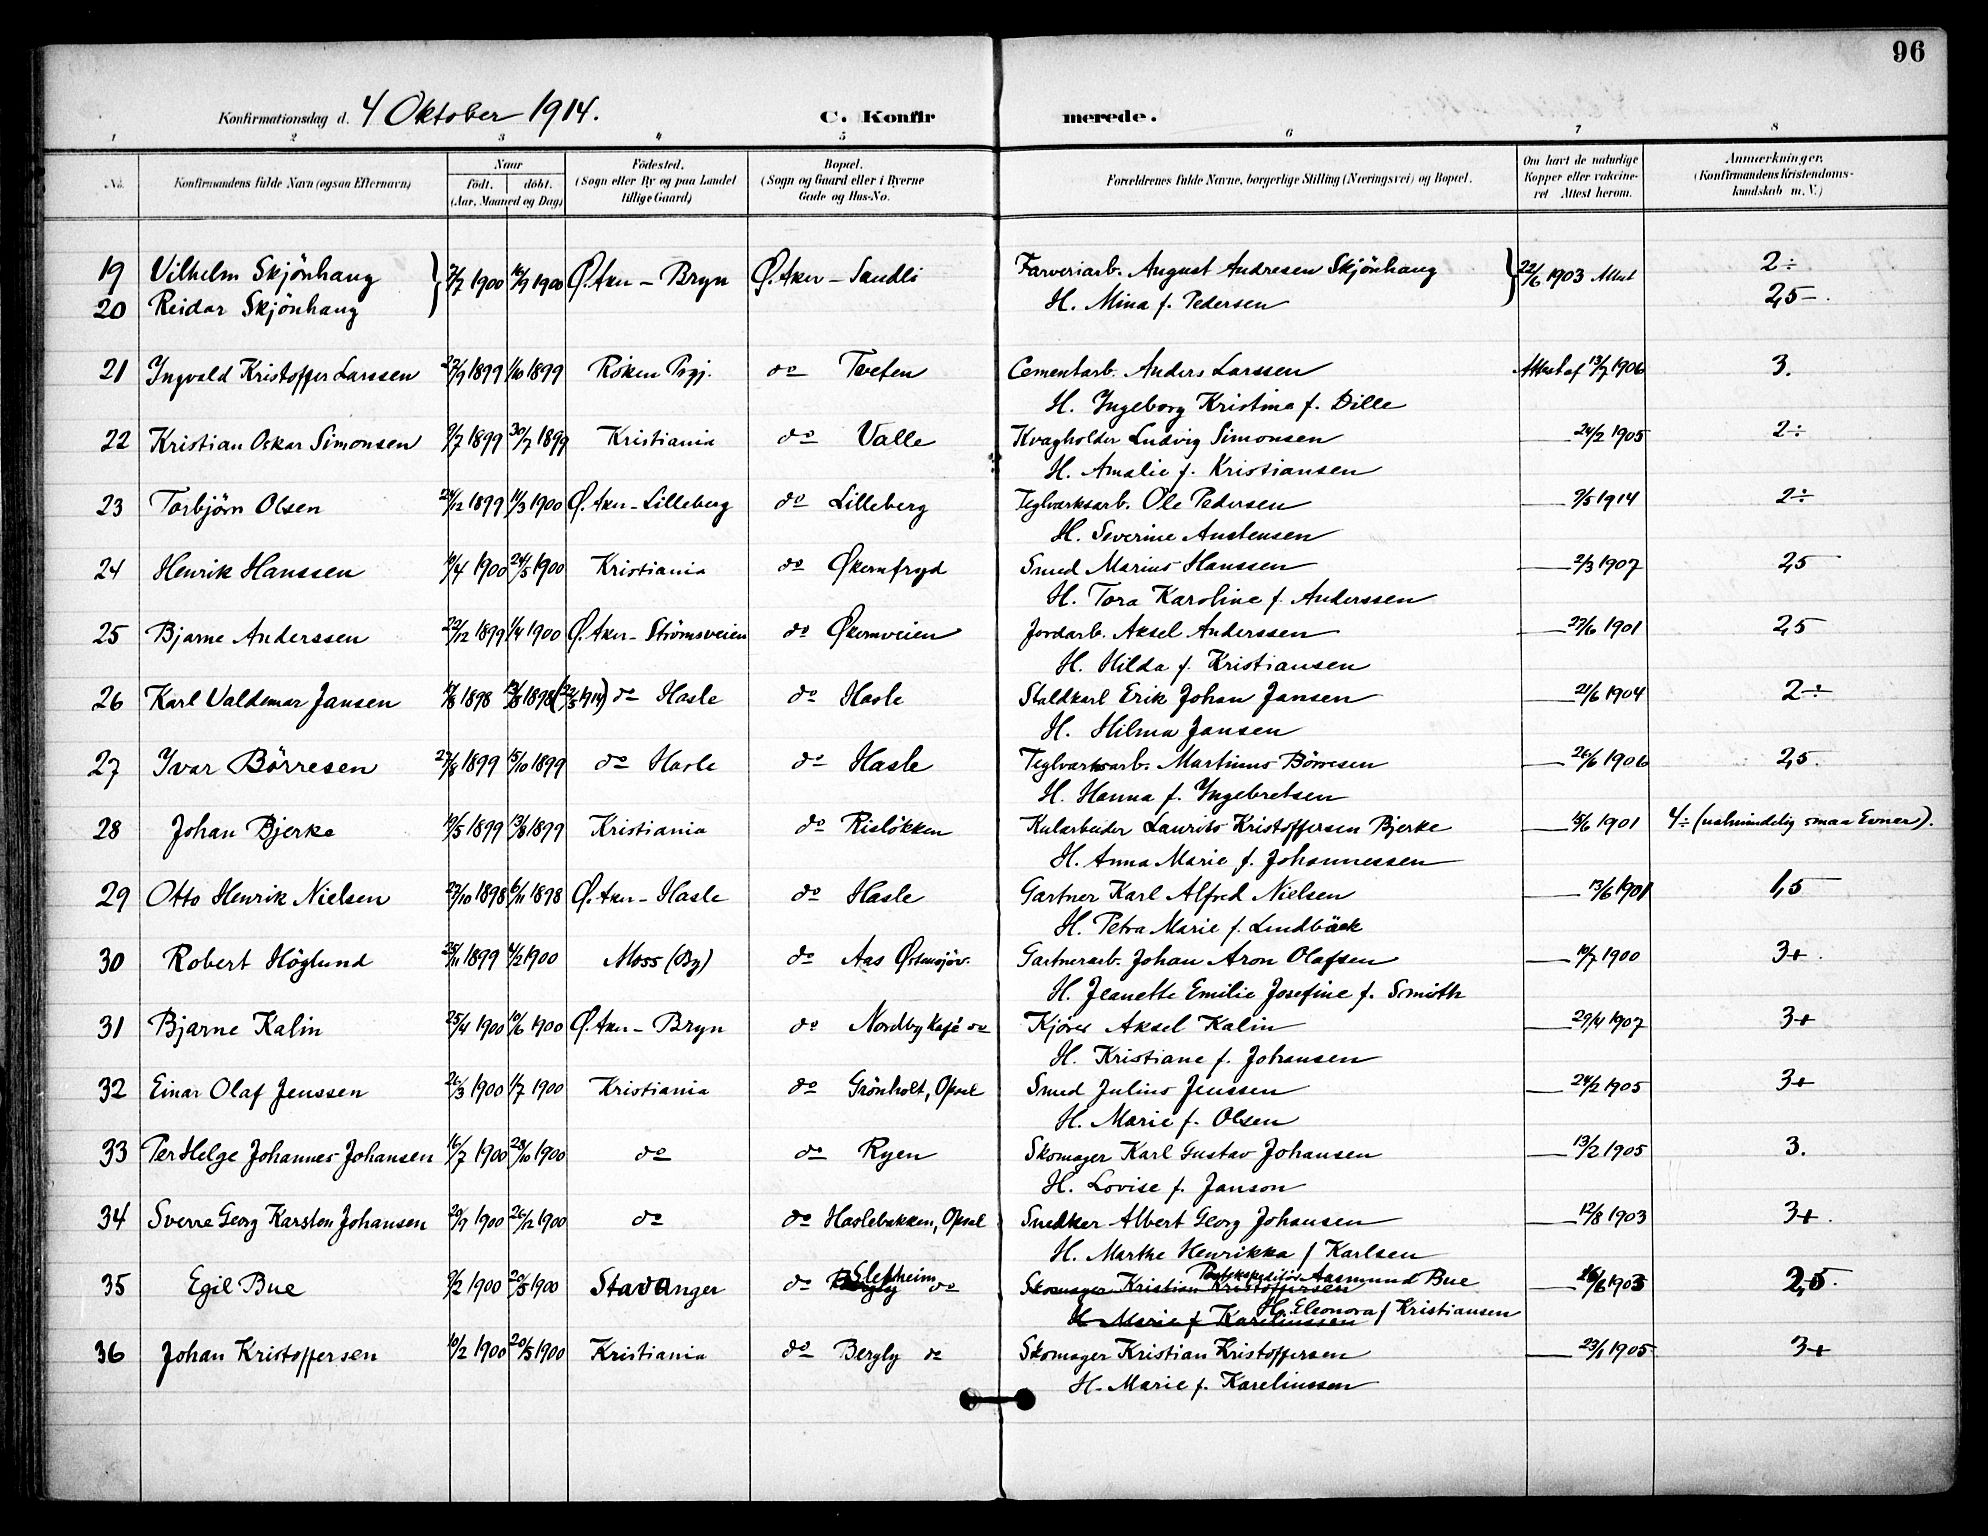 96
Konfirmationsdag d. 4 Oktober 1914. C. Konfirmerede.
1 2 3 4 5 6 7 8
No. Konfirmandens fulde Navn (ogsaa Efternavn) Naar født. døbt. (Aar, Maaned og Dag) Födested. (Sogn eller By og paa Landet tillige Gaard) Bopæl. (Sogn og Gaard eller i Byerne Gade og Hus-No. Forældrenes fulde Navne, borgerlige Stilling (Næringsvei) og Bopæl. Om havt de naturlige Kopper eller vakcineret Attest herom. Anmærkninger. (Konfirmandens Kristendomskundskab m. V.)
19 Vilhelm Skjönhaug } 1900 16/9 1900 Ø. Aker - Bryn Ø. Aker - Sandli Farveriarb. August Andresen Skjönhaug } 22/6 1903 Attest 2÷
20 Reidar Skjönhaug H. Mina f. Pedersen 2,5 -.
21 Ingvald Kristoffer Larssen 27/9 1899 1/10 1899 Röken Prgj. do Tveten Cementarb. Anders Larssen Attest af 13/7 1906 3.
H. Ingeborg Kristina f. Dille
22 Kristian Oskar Simonsen 9/7 1899 30/7 1899 Kristiania do Valle Kvægholder Ludvig Simonsen — 24/2 1905 2÷
H. Amalie f. Kristiansen
23 Torbjörn Olsen 24/12 1899 11/3 1900 Ø. Aker - Lilleberg do Lilleberg Teglværksarb. Ole Pedersen — 9/5 1914 2÷
H. Severine Austensen
24 Henrik Hanssen 10/4 1900 24/5 1900 Kristiania do Økernfryd Smed Marius Hanssen — 2/3 1907 2,5
H. Tora Karoline f. Anderssen
25 Bjarne Anderssen 22/12 1899 1/4 1900 Ø. Aker - Strömsveien do Økernveien Jordarb. Aksel Anderssen — 27/6 1901 2,5
H. Hilda f. Kristiansen
26 Karl Valdemar Jansen 1898 1898 (22/5 1914) do Hasle do Hasle Staldkarl Erik Johan Jansen — 21/6 1904 2÷
H. Hilma Jansen
27 Ivar Börresen 27/8 1899 15/10 1899 do Hasle do Hasle Teglværksarb. Martinus Börresen — 26/6 1906 2,5.
H. Hanna f. Ingebretsen
28 Johan Bjerke 19/5 1899 13/8 1899 Kristiania do Rislökken Kularbeider Laurits Kristoffersen Bjerke — 15/6 1901 4÷ (ualmindelig smaa Evner).
H. Anna Marie f. Johannessen
29 Otto Henrik Nielsen 27/10 1898 6/11 1898 Ø. Aker - Hasle do Hasle Gartner Karl Alfred Nielsen — 13/6 1901 1,5
H. Petra Marie f. Lundbäck
30 Robert Höglund 25/11 1899 4/2 1900 Moss (By) do Aas Østensjöv. Gartnerarb. Johan Aron Olafsen — 19/7 1900 3+.
H. Jeanette Emilie Josefine f. Smith
31 Bjarne Kalin 25/4 1900 10/6 1900 Ø. Aker - Bryn do Nordby Kafé do Kjörer Aksel Kalin — 29/4 1907 3+
H. Kristiane f. Johansen
32 Einar Olaf Jenssen 26/3 1900 1/7 1900 Kristiania do Grönholt, Opsal Smed Julius Jenssen — 24/2 1905 3+
H. Marie f. Olsen
33 Per Helge Johannes Johansen 16/7 1900 28/10 1900 do do Ryen Skomager Karl Gustav Johansen — 13/2 1905 3.
H. Lovise f. Janson
34 Sverre Georg Karsten Johansen 20/9 1900 26/12 1900 do do Haslebakken, Opsal Snedker Albert Georg Johansen — 12/8 1903 3+.
H. Marthe Henrikka f Karlsen
35 Egil Bue 9/2 1900 20/5 1900 Stavanger do Bergly Sletheim do Skomager Kristian Kristoffersen Postekspeditör Aasmund Bue — 16/6 1903 2,5.
H. Marie f. Karelinssen H. Eleonora f Kristiansen
36 Johan Kristoffersen 10/2 1900 20/5 1900 Kristiania do Bergly do Skomager Kristian Kristoffersen — 23/1 1905 3+
H. Marie f. Karelinssen